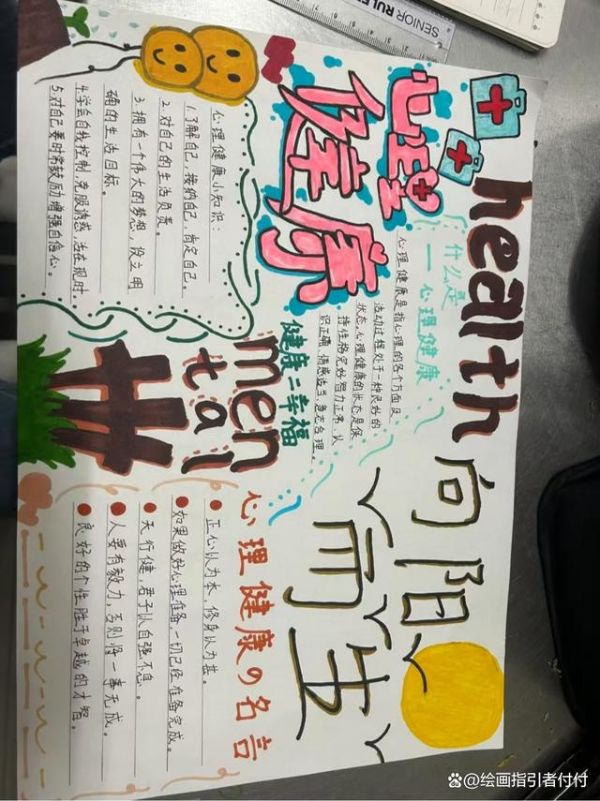 SENIOR RULER
心理
健康
health
心理健康小知识：
1.了解自己，接纳自己，肯定自己。
2.对自己的生活负责。
3.拥有一个伟大的梦想，设立明
确的生活目标。
4.学会自我控制，克服诱惑，活在现时。
5.对自己要时常鼓励增强自信心。
什么是
—心理健康
心理健康是指心理的各个方面及
活动过程处于一种良好的
状态。心理健康的状态是保
持性格完好、智力正常、认
识正确、情感适当、意志合理、
健康=幸福
men
tal
向阳
而生
心理健康の名言
正心以为本，修身以为基。
如果做好心理准备，一切已经准备完成。
天行健，君子以自强不息。
人要有毅力，否则将一事无成。
良好的个性胜于卓越的才智。
@绘画指引者付付